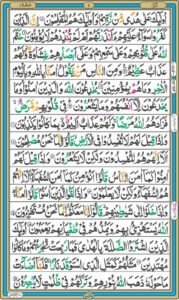 اُولٰٓئِكَ عَلٰى هُدًى مِّنْ رَّبِّهِمْ وَاُولٰٓئِكَ هُمُ الْمُفْلِحُوْنَ اِنَّ
الَّذِيْنَ كَفَرُوْا سَوَآءٌ عَلَيْهِمْ ءَاَنْذَرْتَهُمْ اَمْ لَمْ تُنْذِرْهُمْ لَا يُؤْمِنُوْنَ
خَتَمَ اللّٰهُ عَلٰى قُلُوْبِهِمْ وَعَلٰى سَمْعِهِمْ وَعَلٰٓى اَبْصَارِهِمْ غِشَاوَةٌ وَّلَهُمْ
عَذَابٌ عَظِيْمٌ وَمِنَ النَّاسِ مَنْ يَّقُوْلُ اٰمَنَّا بِاللّٰهِ وَبِالْيَوْمِ
الْاٰخِرِ وَمَا هُمْ بِمُؤْمِنِيْنَ يُخٰدِعُوْنَ اللّٰهَ وَالَّذِيْنَ اٰمَنُوْا
وَمَا يَخْدَعُوْنَ اِلَّآ اَنْفُسَهُمْ وَمَا يَشْعُرُوْنَ فِيْ قُلُوْبِهِمْ مَّرَضٌ
فَزَادَهُمُ اللّٰهُ مَرَضًا وَلَهُمْ عَذَابٌ اَلِيْمٌ بِمَا كَانُوْا يَكْذِبُوْنَ
وَاِذَا قِيْلَ لَهُمْ لَا تُفْسِدُوْا فِى الْاَرْضِ قَالُوْٓا اِنَّمَا نَحْنُ مُصْلِحُوْنَ
اَلَآ اِنَّهُمْ هُمُ الْمُفْسِدُوْنَ وَلٰكِنْ لَّا يَشْعُرُوْنَ وَاِذَا قِيْلَ لَهُمْ
اٰمِنُوْا كَمَآ اٰمَنَ النَّاسُ قَالُوْٓا اَنُؤْمِنُ كَمَآ اٰمَنَ السُّفَهَآءُ اَلَآ
اِنَّهُمْ هُمُ السُّفَهَآءُ وَلٰكِنْ لَّا يَعْلَمُوْنَ وَاِذَا لَقُوا الَّذِيْنَ اٰمَنُوْا قَالُوْٓا اٰمَنَّا
وَاِذَا خَلَوْا اِلٰى شَيٰطِيْنِهِمْ قَالُوْٓا اِنَّا مَعَكُمْ اِنَّمَا نَحْنُ مُسْتَهْزِءُوْنَ
اَللّٰهُ يَسْتَهْزِئُ بِهِمْ وَيَمُدُّهُمْ فِيْ طُغْيَانِهِمْ يَعْمَهُوْنَ اُولٰٓئِكَ
الَّذِيْنَ اشْتَرَوُا الضَّلٰلَةَ بِالْهُدٰى فَمَا رَبِحَتْ تِّجَارَتُهُمْ وَمَا كَانُوْا
مُهْتَدِيْنَ مَثَلُهُمْ كَمَثَلِ الَّذِى اسْتَوْقَدَ نَارًا فَلَمَّآ اَضَآءَتْ
مَا حَوْلَهٗ ذَهَبَ اللّٰهُ بِنُوْرِهِمْ وَتَرَكَهُمْ فِيْ ظُلُمٰتٍ لَّا يُبْصِرُوْنَ